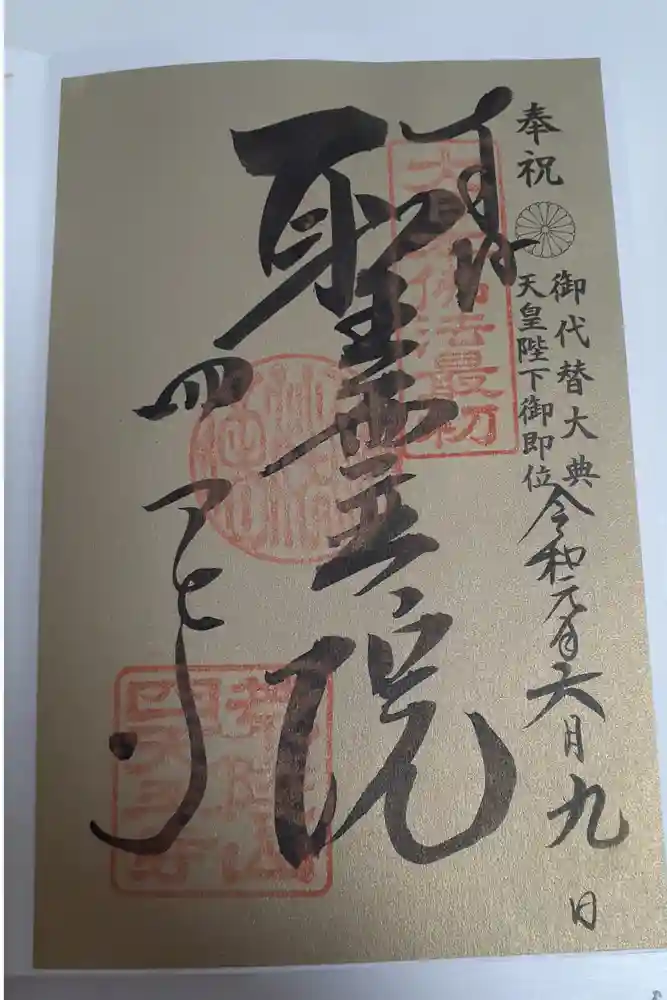 奉祝
御代替大典
天皇陛下御即位
令和元年六月九日
奉拝
大日本佛法最初
聖霊院
四天王寺
荒陵山
四天王寺